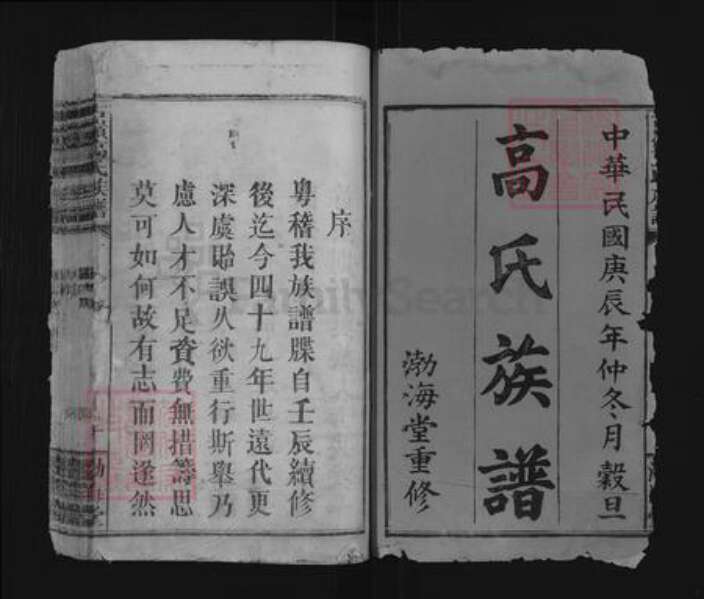 中華民國庚辰年仲冬月穀旦
高氏族譜
渤海堂重修
序
粵稽我族譜牒自壬辰續修
後迄今四十九年世遠代更
深虞貽誤久欲重行斯舉乃
慮人才不足資費無措籌思
莫可如何故有志而罔遂然
FamilySearch